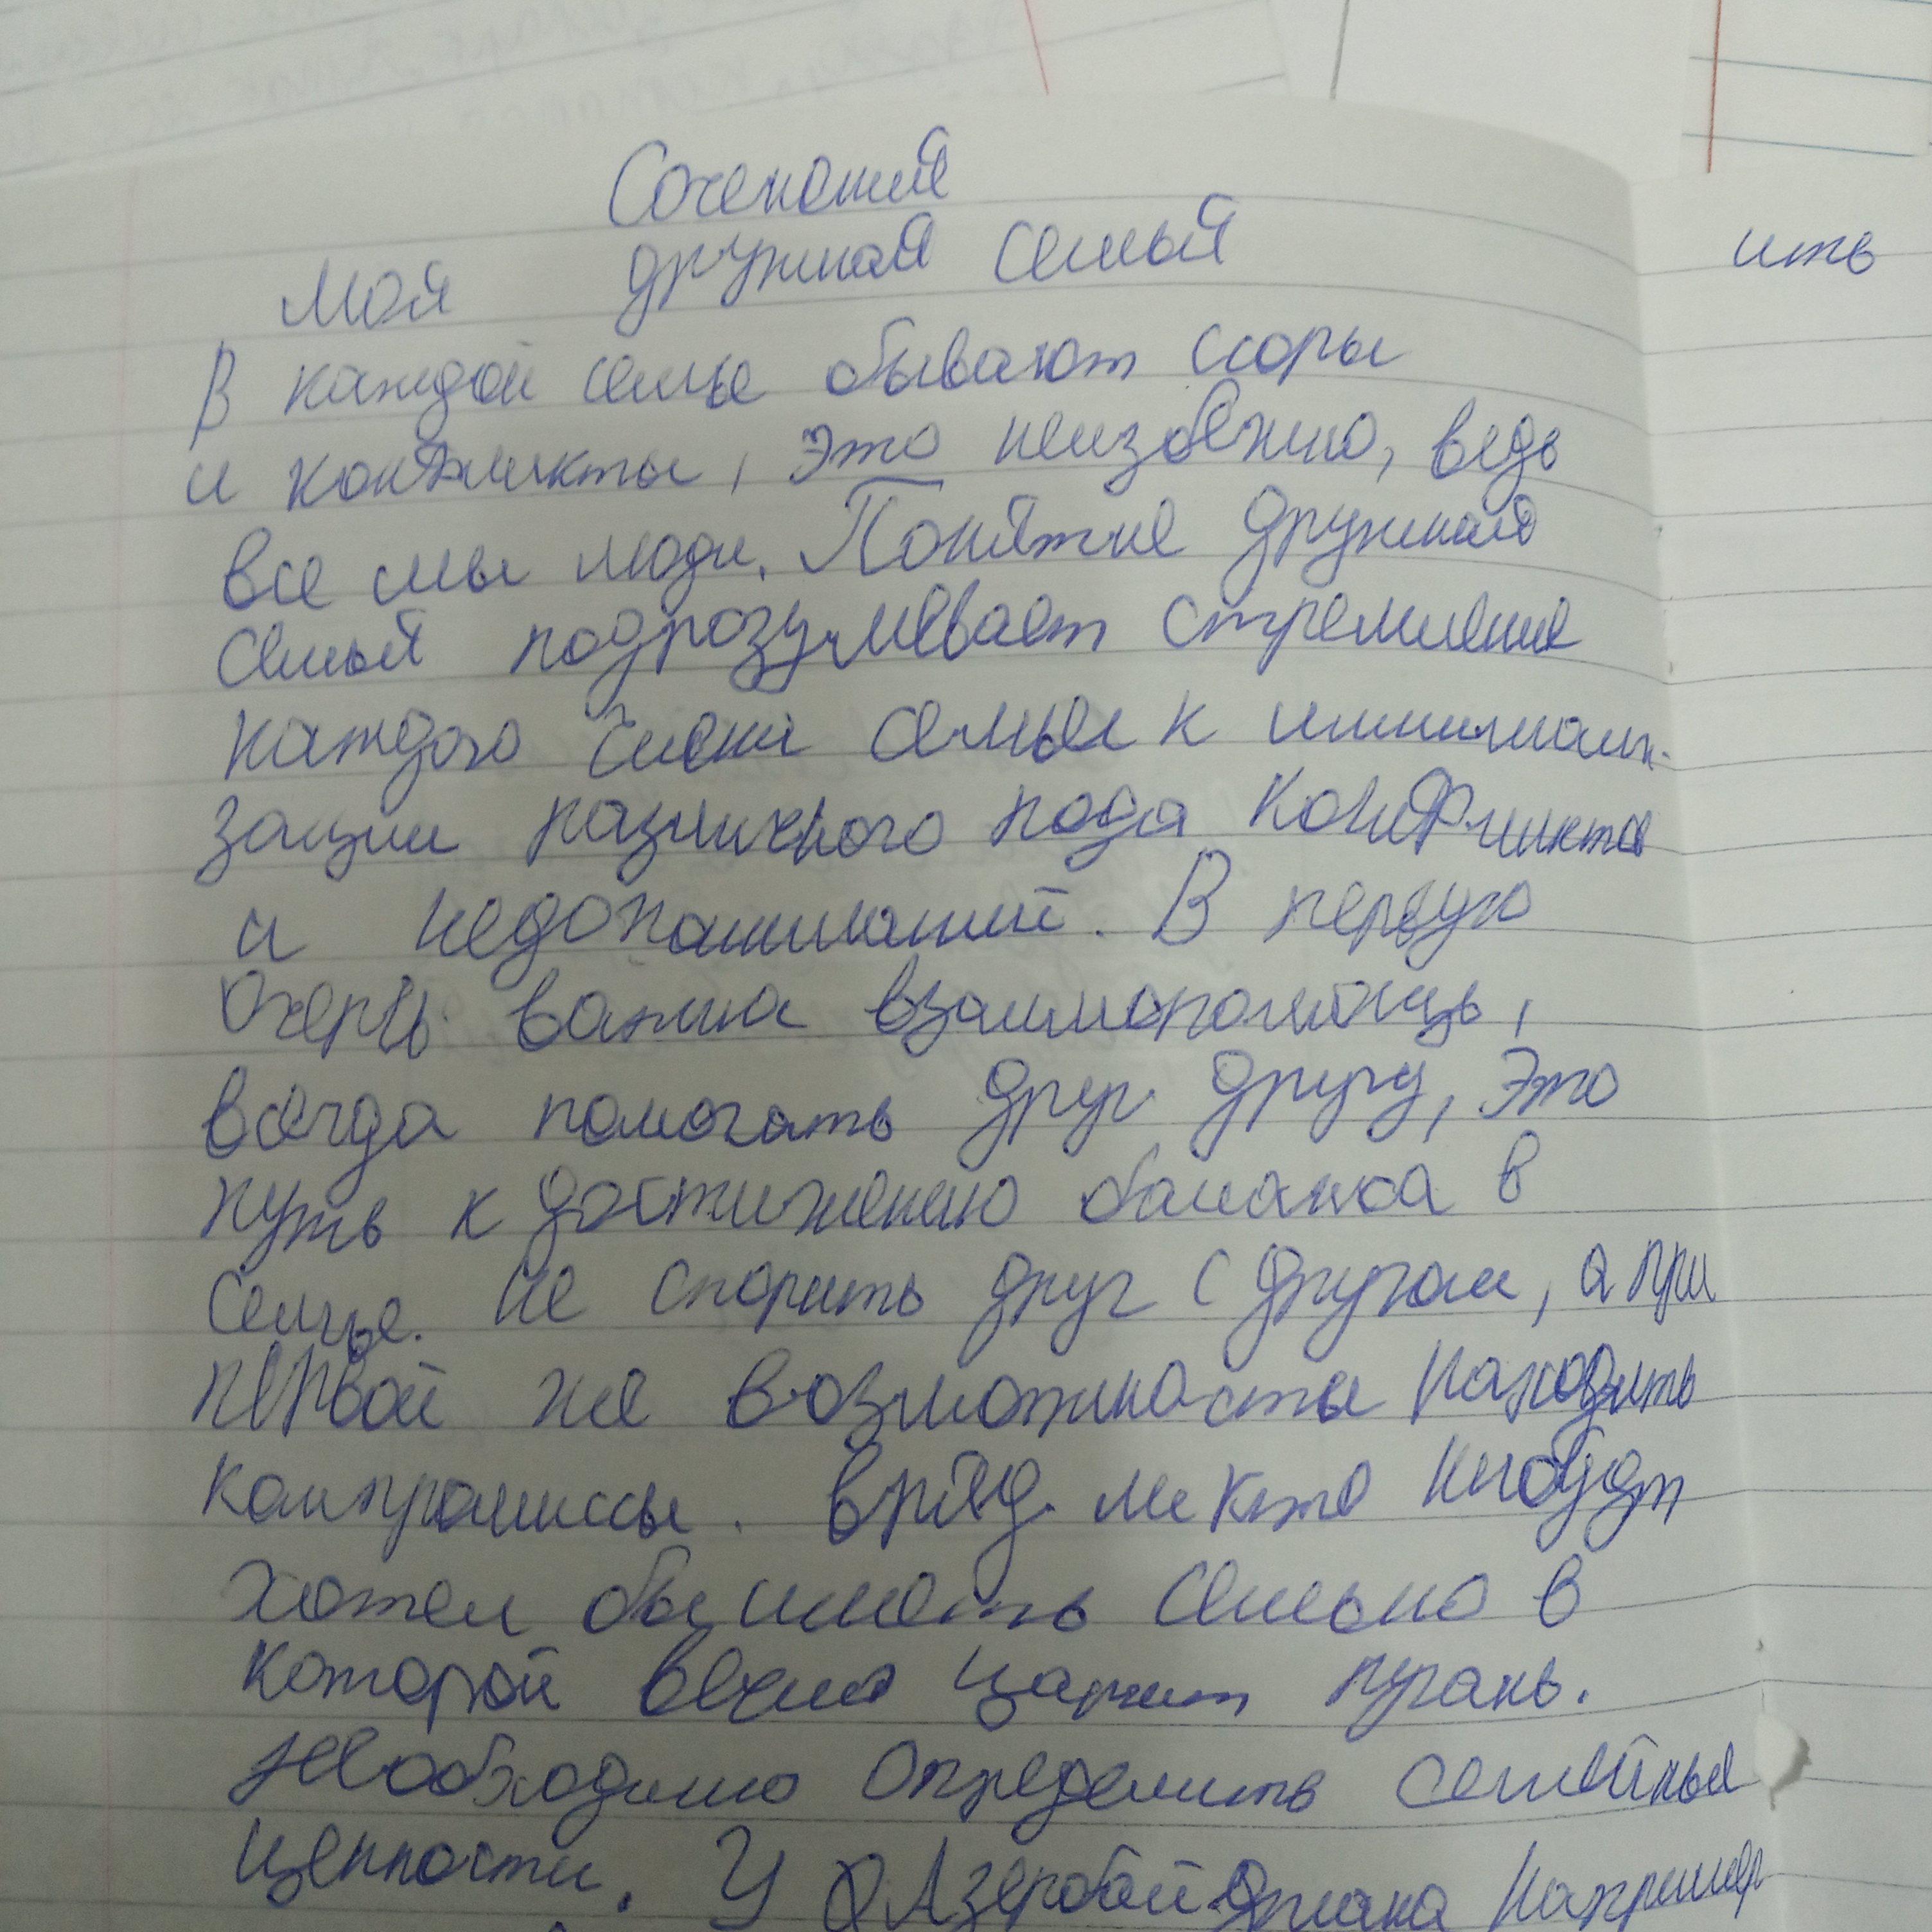 Соченение
Моя дружная семья
ить
В каждой семье бывают ссоры
и конфликты, это неизбежно, ведь
все мы люди. Понятие дружная
семья подрозумевает стремление
каждого члена семьи к минимали-
зации различного рода конфликтов
и недопониманий. В первую
очередь важна взаимопомощь,
всегда помогать друг другу, это
путь к достижению баланса в
семье. Не спорить друг с другом, а при
первой же возможности находить
компромиссы. вряд ли кто нибудь
хотел бы иметь семью в
которой вечно царит ругань.
Необходимо определить семейные
ценности. У Азербайджана например